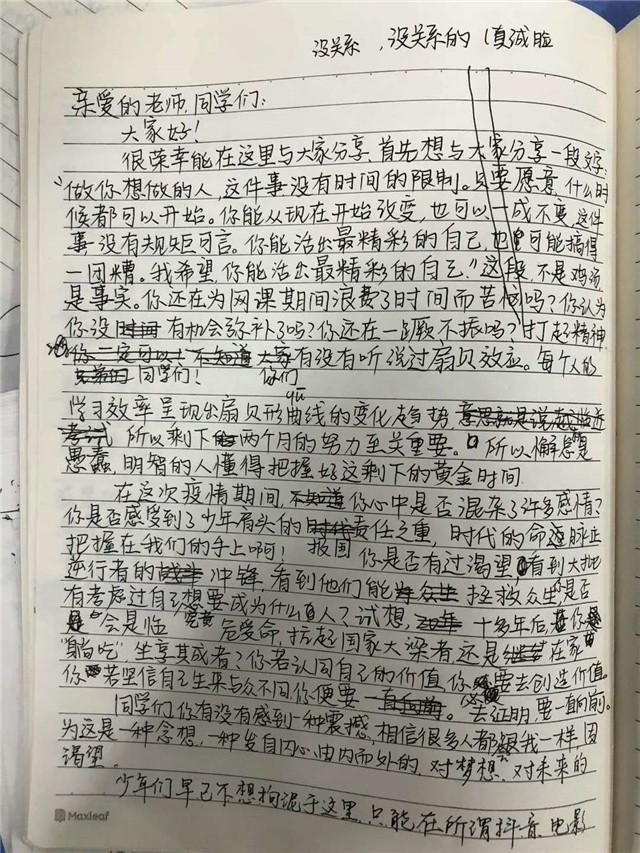 没关系,没关系的 真诚脸
亲爱的老师,同学们:
大家好!
很荣幸能在这里与大家分享,首先想与大家分享一段文字:
“做你想做的人,这件事没有时间的限制。只要愿意,什么时
候都可以开始。你能从现在开始改变,也可以一成不变,这件
事没有规矩可言。你能活出最精彩的自己,也可能搞得
一团糟。我希望,你能活出最精彩的自己。”这段,不是鸡汤
是事实。你还在为网课期间浪费了时间而苦恼吗?你认为
你没有机会弥补了吗?你还在一蹶不振吗?打起精神,
你一定可以!不知道大家有没有听说过扇贝效应。每个人的
同学们! 你们
学习效率呈现出扇贝形曲线的变化趋势 意思就是说越临近
考试 所以剩下的两个月的努力至关重要。所以懈怠是
愚蠢,明智的人懂得把握好这剩下的黄金时间
在这次疫情期间,不知道你心中是否混杂了许多感情?
你是否感受到了少年肩头的时代责任之重,时代的命脉正
把握在我们的手上啊!报国 你是否有过渴望,看到大批
逆行者的冲锋,看到他们能拯救众生,是否
有考虑过自己想要成为什么人?试想,十多年后,你
会是临危受命,扛起国家大梁者还是在家
“躺吃”,坐享其成者?你若认同自己的价值,你要去创造价值。
你若坚信自己生来与众不同你便要 一直向前。去证明,要一直向前。
同学们,你有没有感到一种震撼,相信很多人都跟我一样,因
为这是一种念想,一种发自内心,由内而外的,对梦想,对未来的
渴望。
少年们早已不想拘泥于这里,只能在所谓抖音,电影
Maxleaf